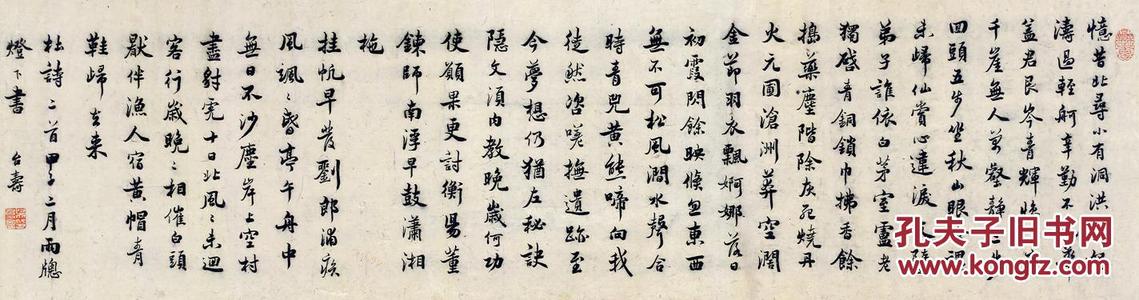 憶昔北尋小有洞洪
濤過輕舸辛勤不華
蓋君艮岑青輝慘
千崖無人萬壑靜三步
回頭五步坐秋山眼
未歸仙賞心違淚
弟子誰依白茅室盧老
獨啓青銅鎖巾拂香餘
搗藥塵階除灰死燒丹
火元圃滄洲莽空闊
金節羽衣飄婀娜落日
初霞閃餘映倏忽東西
無不可松風澗水聲合
時青兕黃熊啼向我
徒然咨嗟撫遺跡至
今夢想仍猶左秘訣
隱文須內教晚歲何功
使願果更討衡陽董
鍊師南浮早鼓瀟湘
柁
挂帆早發劉郎浦疾
風颯々昏亭午舟中
無日不沙塵岸上空村
盡豺虎十日北風々未迴
客行歲晚々相催白頭
厭伴漁人宿黃帽青
鞋歸去來
杜詩二首甲子二月雨牕
燈下書 台壽
孔夫子旧书网
KONGFZ.COM